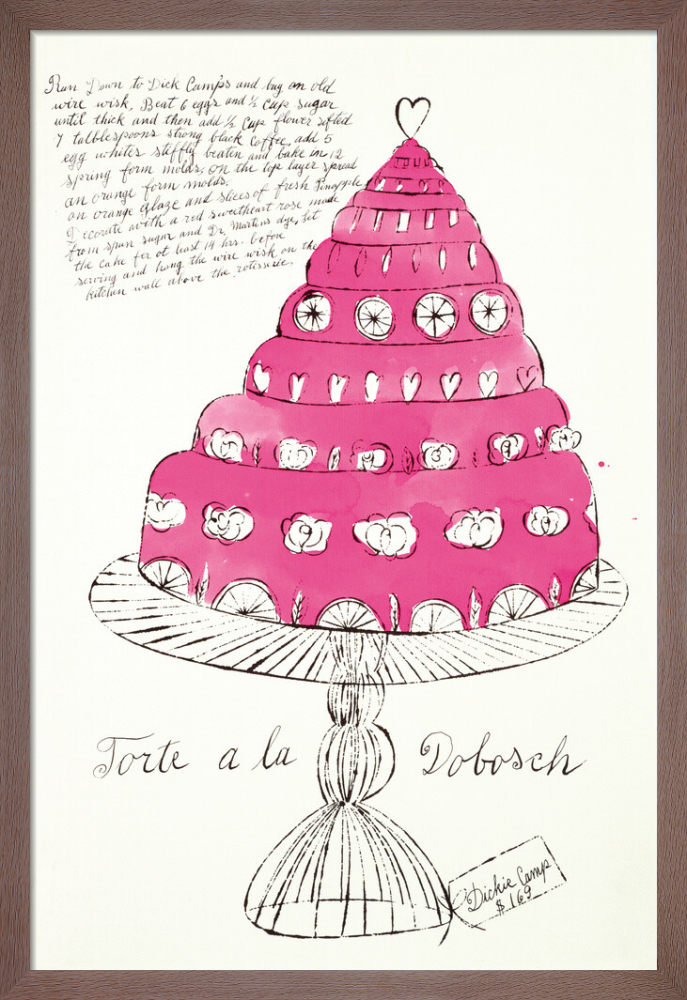 Run Down to Dick Camps and buy an old
wire wisk, Beat 6 eggs and ½ Cup sugar
until thick and then add ½ Cup flower sifted
7 talblespoons strong black Coffee, add 5
egg whites stiffly beaten and bake in 12
spring form molds; on the top layer spread
an orange form molds.
on orange glaze and slices of fresh Pineapple
Decorate with a red sweetheart rose made
from spun sugar and Dr. Martens dye, let
the cake fer at least 14 hrs. before
serving and hang the wire wisk on the
kitchen wall above the rotisserie.
Torte a la Dobosch
Dickie Camp
$ 169